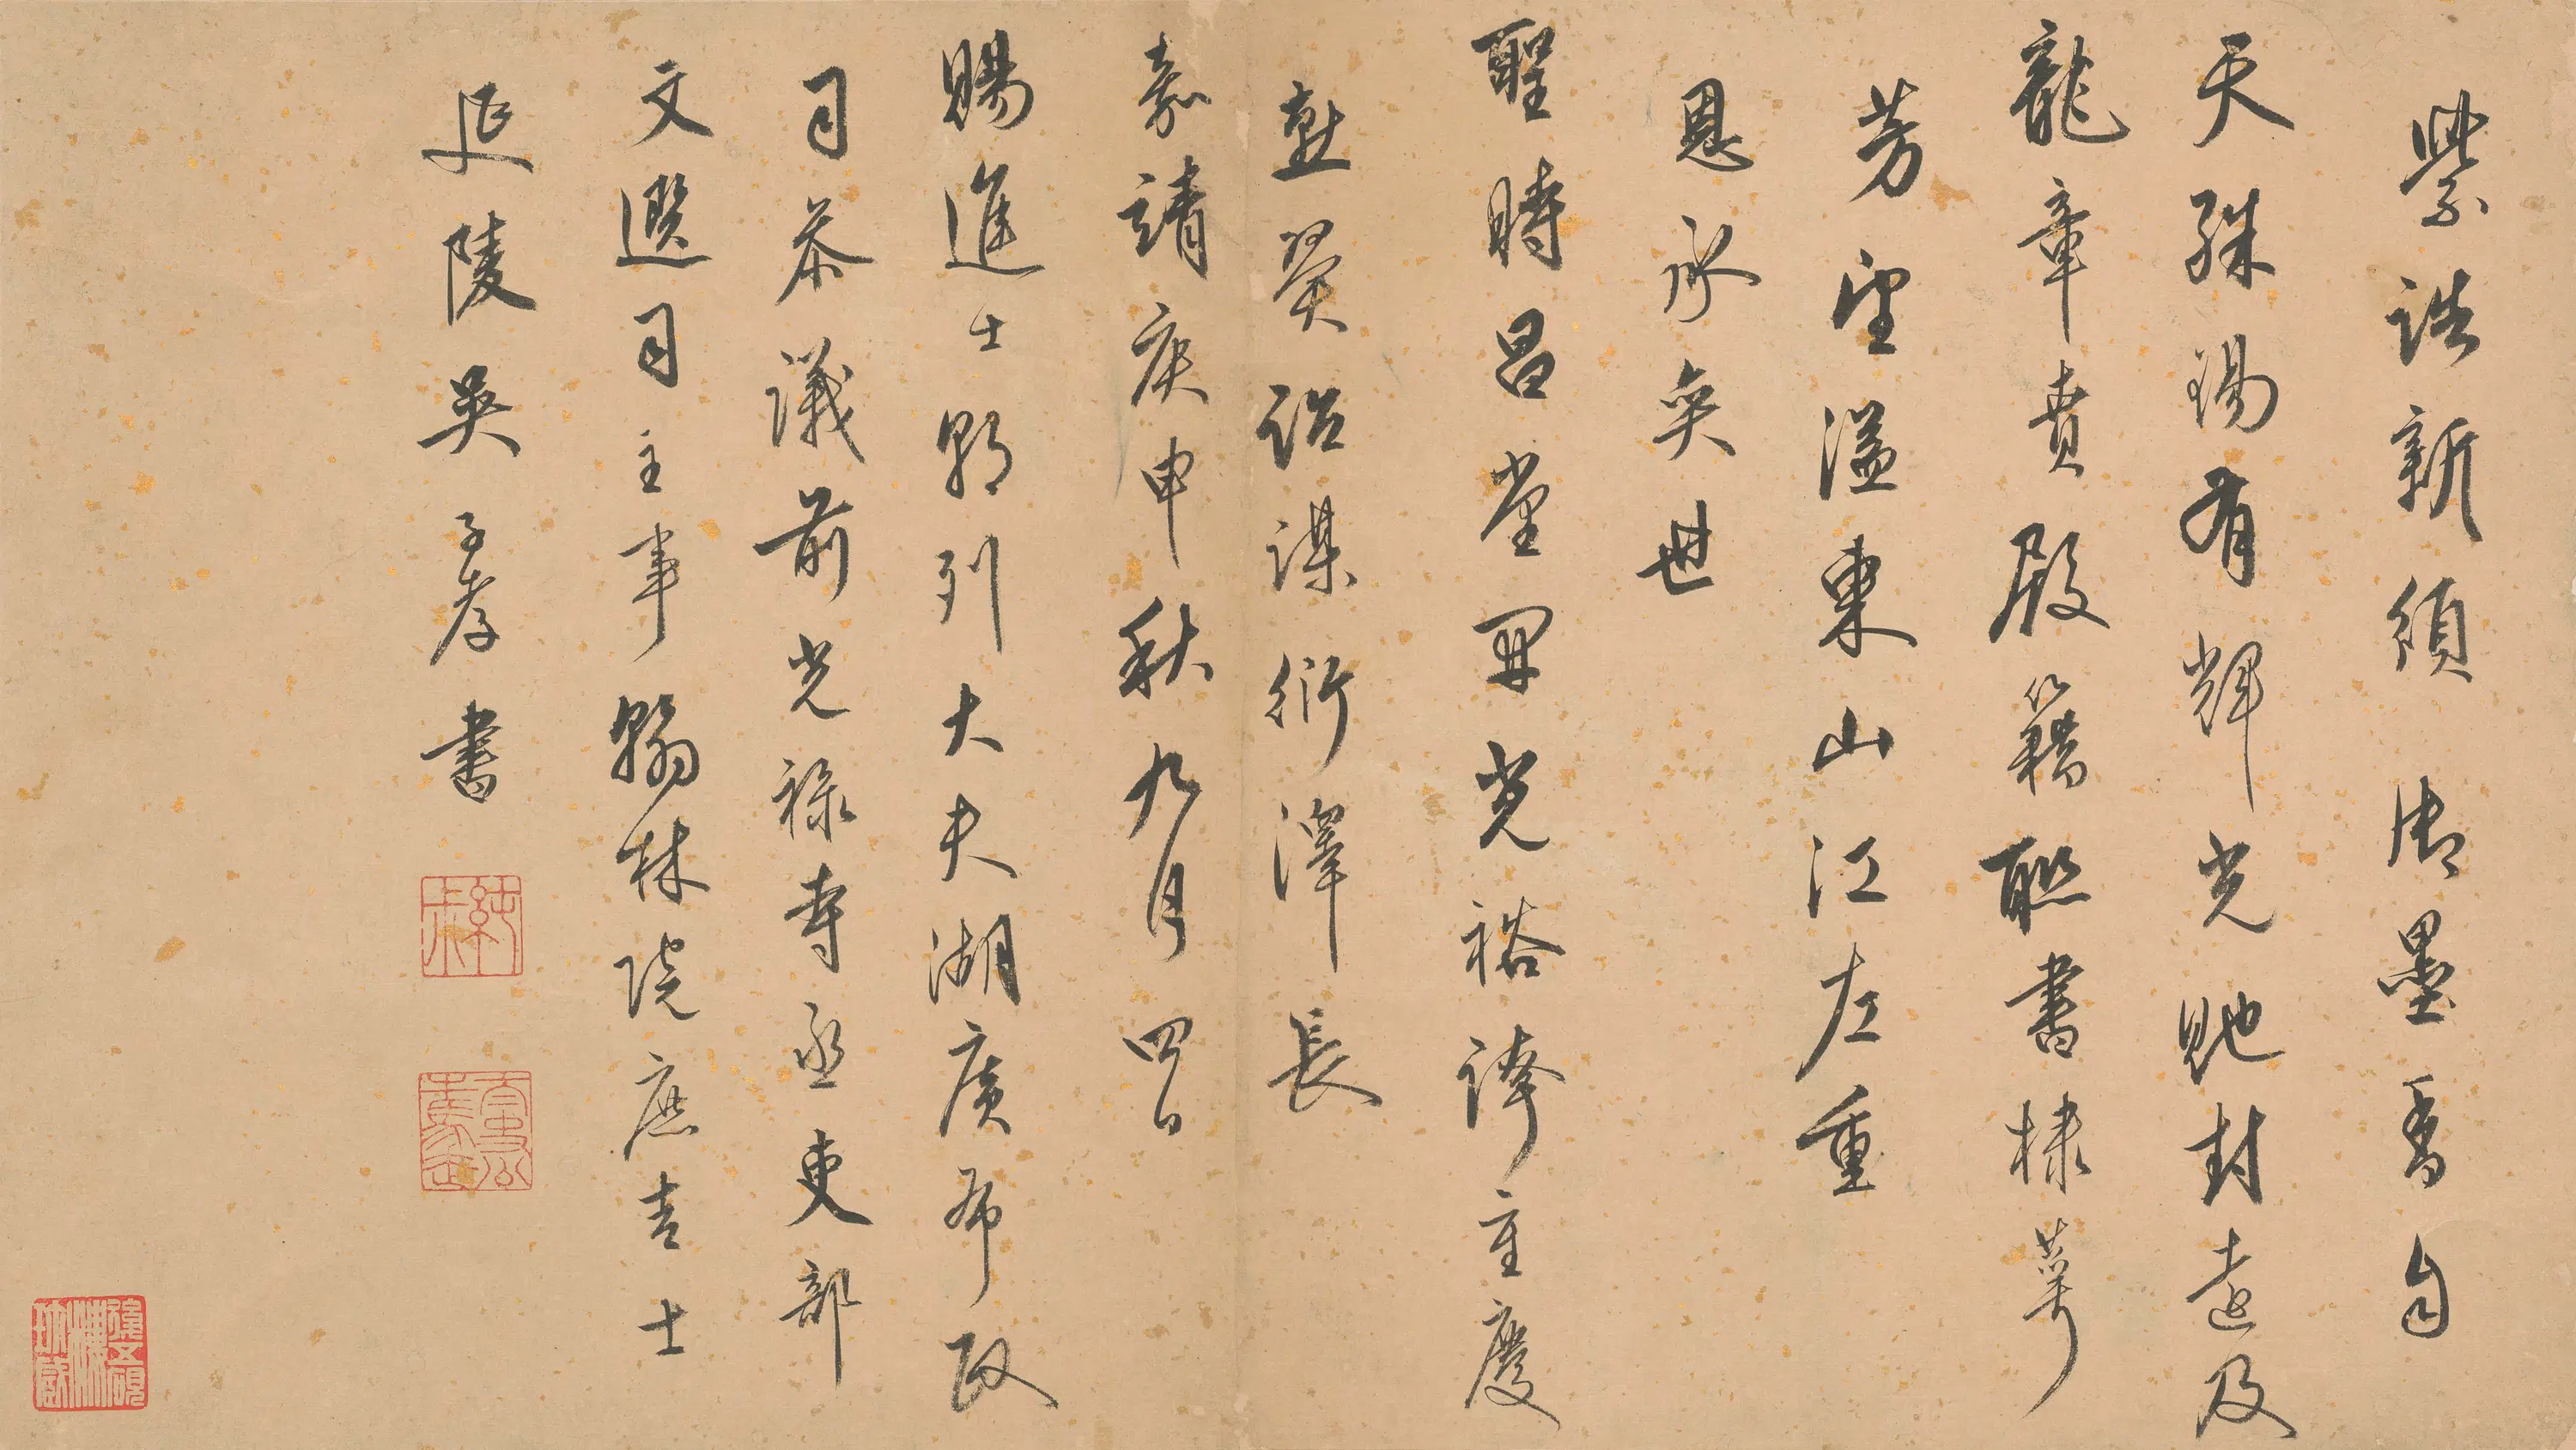 紫誥新頒御墨香自
天殊錫有輝光貤封遠及
龍章賁殿籍聯書棣萼
芳望溢東山江左重
恩承奕世
聖時昌堂開光裕諱重慶
勲榮詒謀衍澤長
嘉靖庚申秋九月四日
賜進士朝列大夫湖廣布政
司參議前光祿寺丞吏部
文選司主事翰林院庶吉士
延陵吳子孝書
純叔